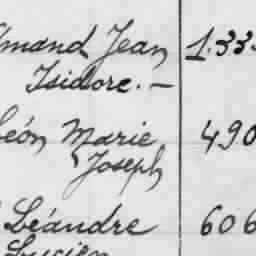 Armand Jean 1.33
Isidore. —
Léon Marie 490
Joseph
Léandre 606
Lucien